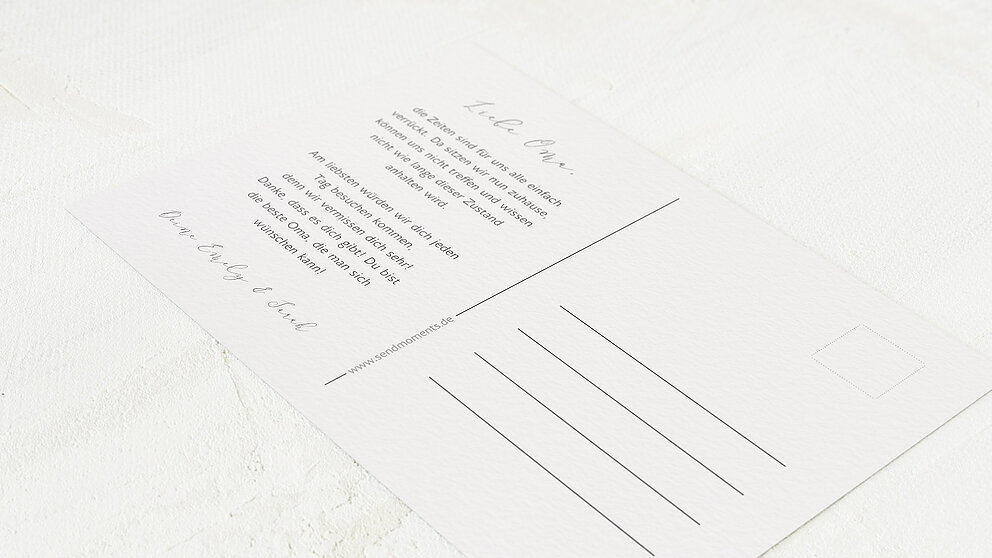 Liebe Oma,
die Zeiten sind für uns alle einfach
verrückt. Da sitzen wir nun zuhause,
können uns nicht treffen und wissen
nicht wie lange dieser Zustand
anhalten wird.
Am liebsten würden wir dich jeden
Tag besuchen kommen,
denn wir vermissen dich sehr!
Danke, dass es dich gibt! Du bist
die beste Oma, die man sich
wünschen kann!
Deine Emely & Sarah
www.sendmoments.de